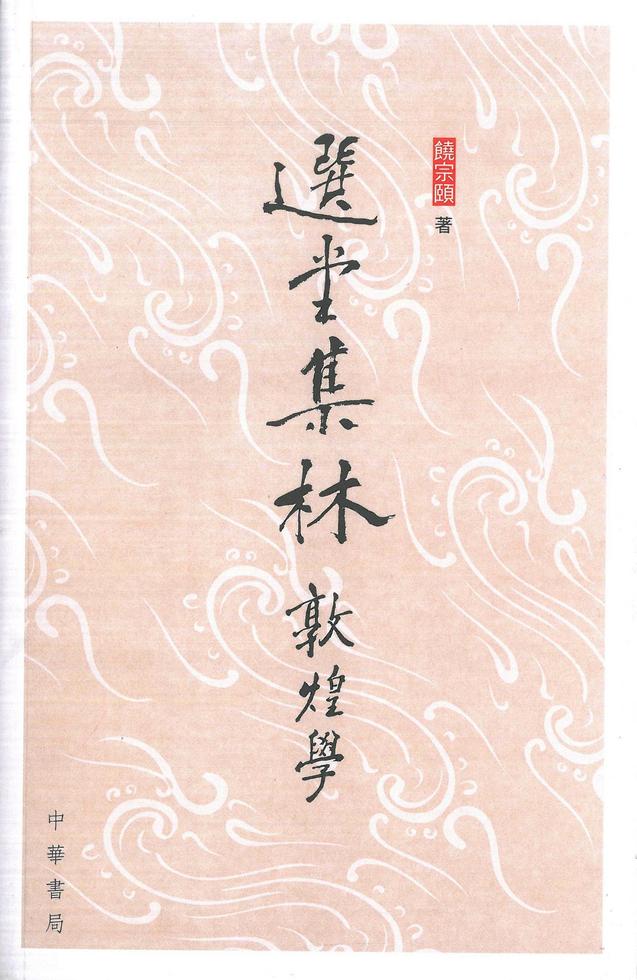 饒宗頤 著
選堂集林 敦煌學
中華書局